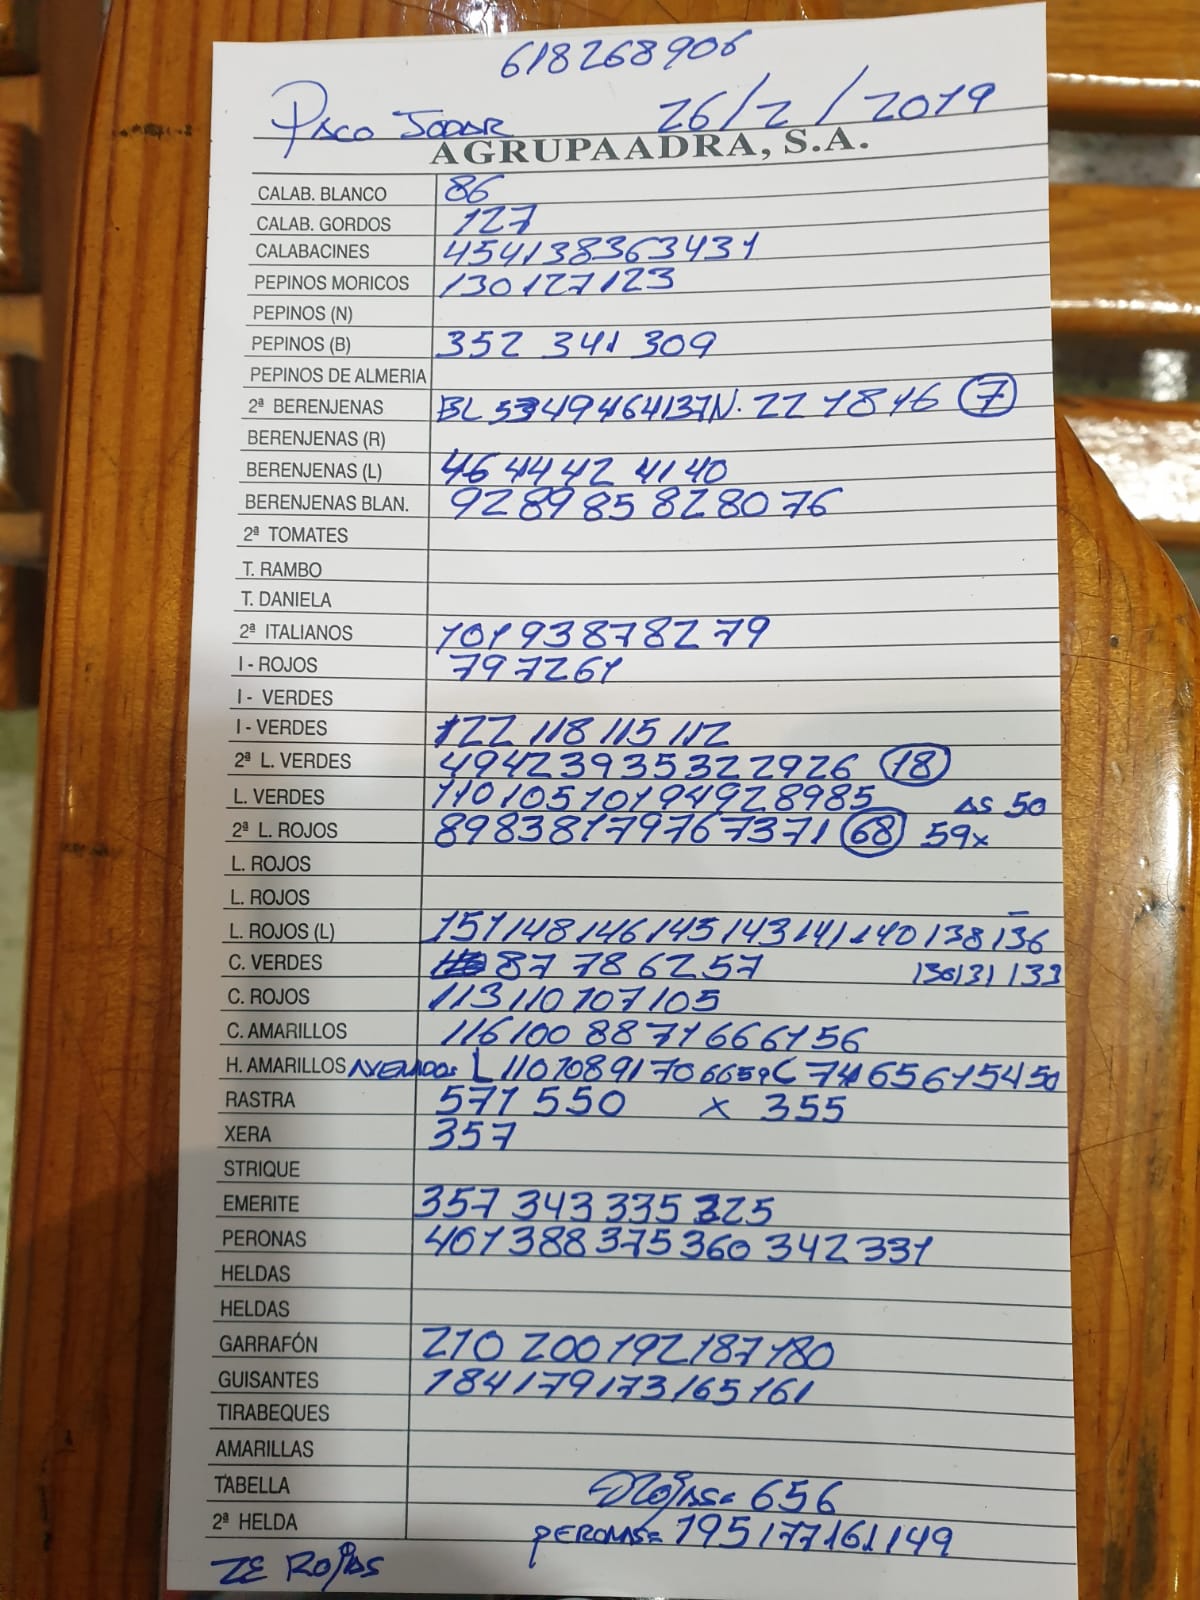 618268906
Paco Jodar 26/2/2019
AGRUPAADRA, S.A.
CALAB. BLANCO 86
CALAB. GORDOS 127
CALABACINES 454138363431
PEPINOS MORICOS 130127123
PEPINOS (N)
PEPINOS (B) 352 341 309
PEPINOS DE ALMERIA
2ª BERENJENAS BL 5349464137N. 22 1816 7
BERENJENAS (R)
BERENJENAS (L) 46 44 42 41 40
BERENJENAS BLAN. 92 89 85 82 80 76
2ª TOMATES
T. RAMBO
T. DANIELA
2ª ITALIANOS 101 93 87 82 79
I - ROJOS 79 72 61
I - VERDES
I - VERDES 122 118 115 112
2ª L. VERDES 49 42 39 35 32 29 26 18
L. VERDES 110 105 101 94 92 89 85 AS 50
2ª L. ROJOS 89 83 81 79 76 73 71 68 59x
L. ROJOS
L. ROJOS
L. ROJOS (L) 151 148 146 145 143 141 140 138 136
C. VERDES 87 78 62 57 130 131 133
C. ROJOS 113 110 107 105
C. AMARILLOS 116 100 88 71 66 61 56
H. AMARILLOS L 110 108 91 70 66 59 C 74 65 61 54 50
RASTRA 571 550 x 355
XERA 357
STRIQUE
EMERITE 357 343 335 325
PERONAS 401 388 375 360 342 331
HELDAS
HELDAS
GARRAFÓN 210 200 192 187 180
GUISANTES 184 179 173 165 161
TIRABEQUES
AMARILLAS
TABELLA Rojas= 656
2ª HELDA PERONAS= 195 177 161 149
ZE Rojas